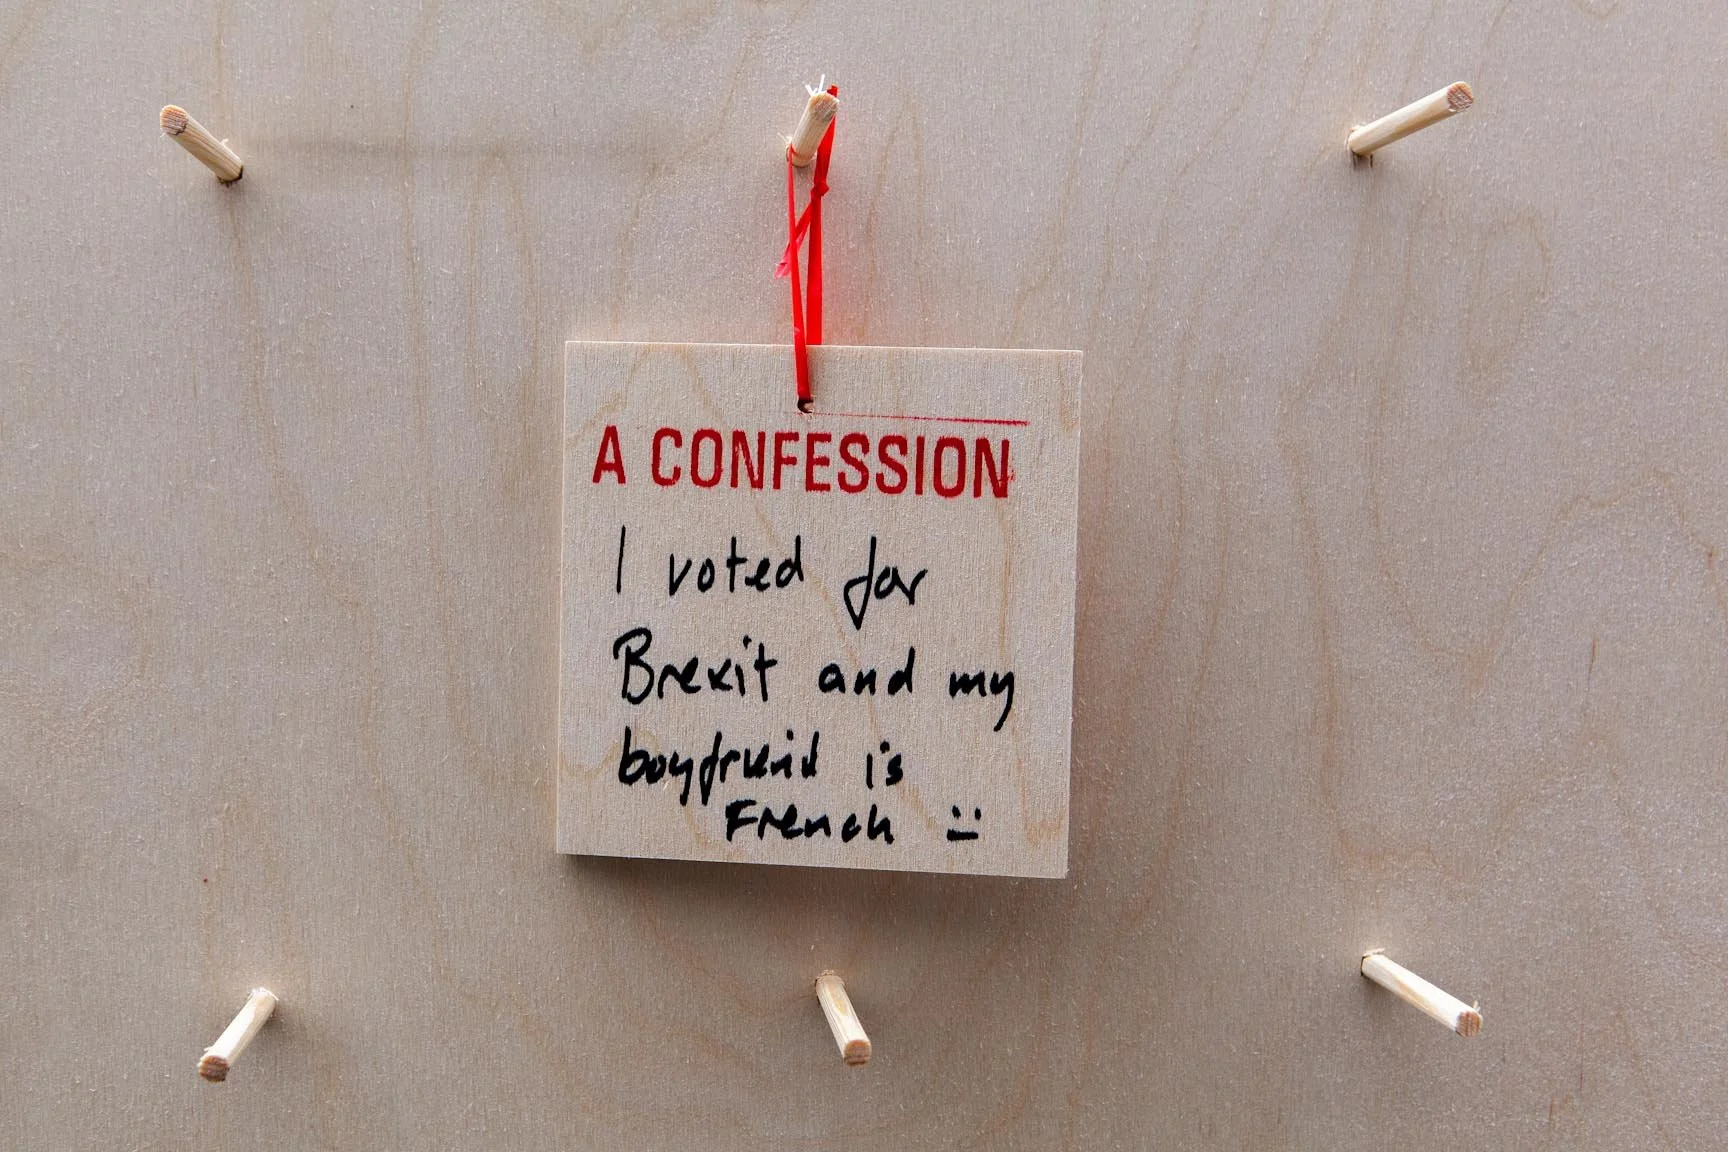 A CONFESSION
I voted for
Brexit and my
boyfriend is
French :|